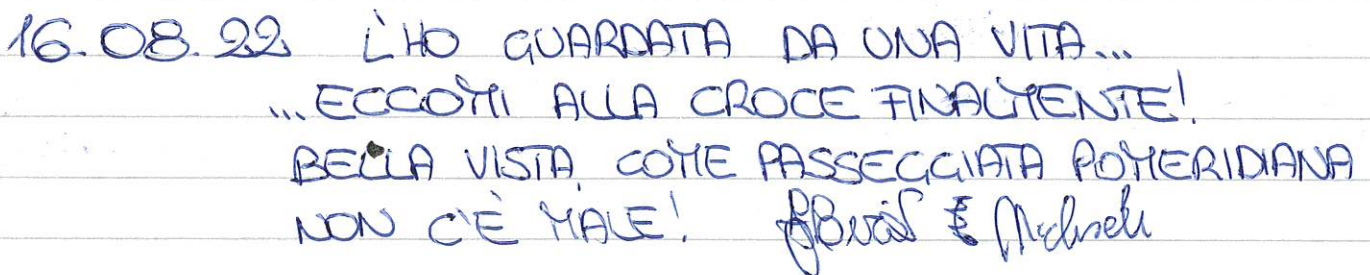 16.08.22 L'HO GUARDATA DA UNA VITA...
...ECCOMI ALLA CROCE FINALMENTE!
BELLA VISTA, COME PASSEGGIATA POMERIDIANA
NON C'È MALE!